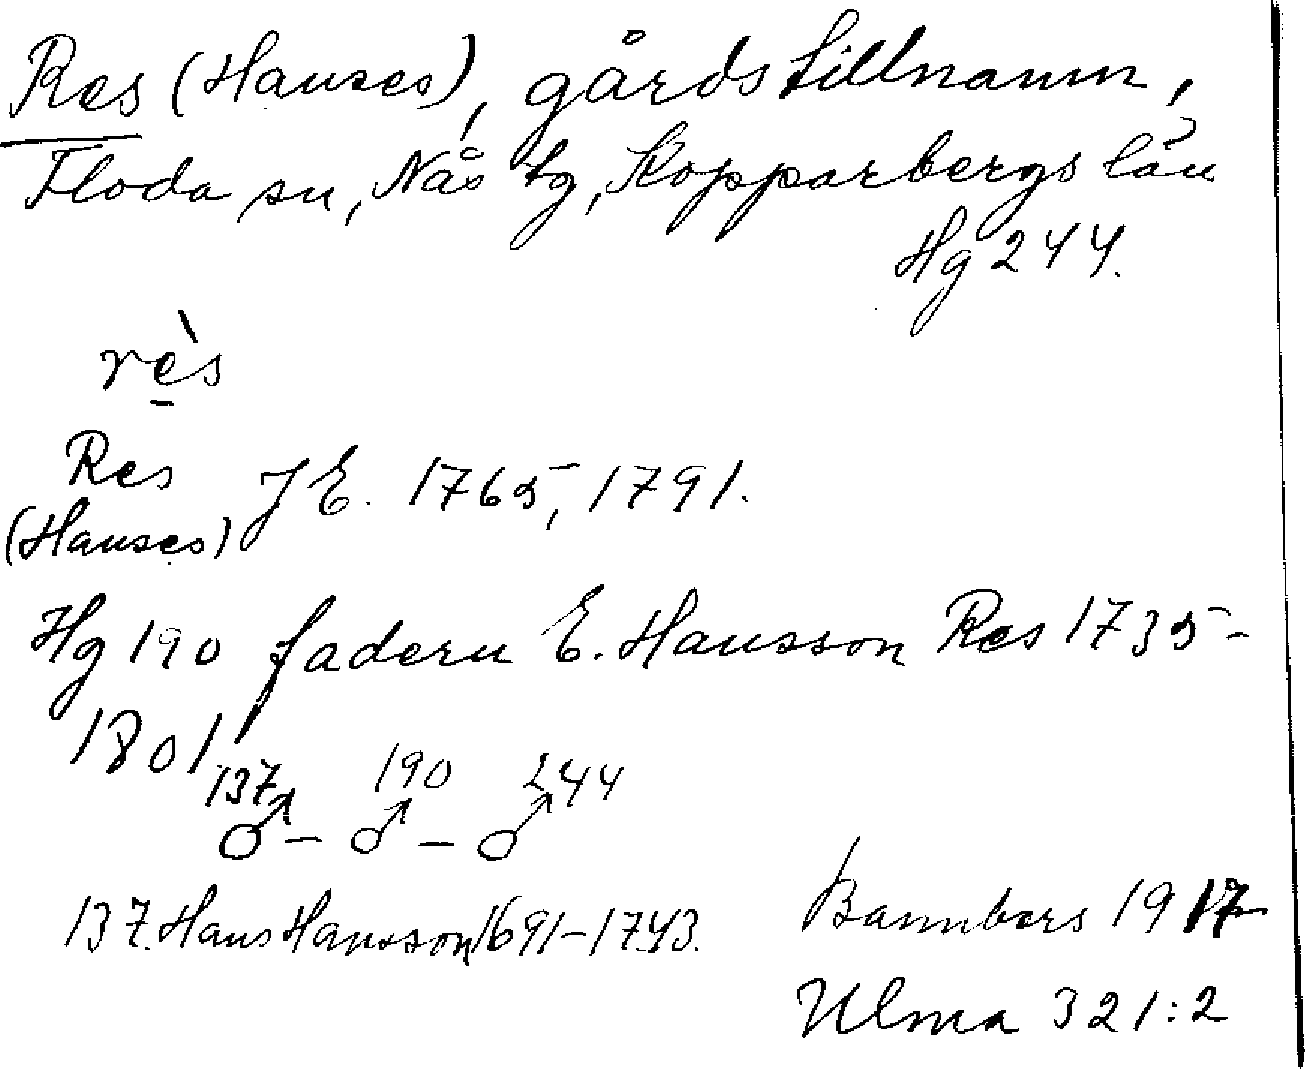 Res (Hanses), gårdstillnamn,
Floda sn, Nås tg, Kopparbergs län
Hg 244.
rès
Res JE. 1765, 1791.
(Hanses)
Hg 190 fadern E. Hansson Res 1735-
1801.
137 190 244
♂ - ♂ - ♂
137. Hans Hansson 1691-1743.
Bannbers 1917
Ulma 321:2